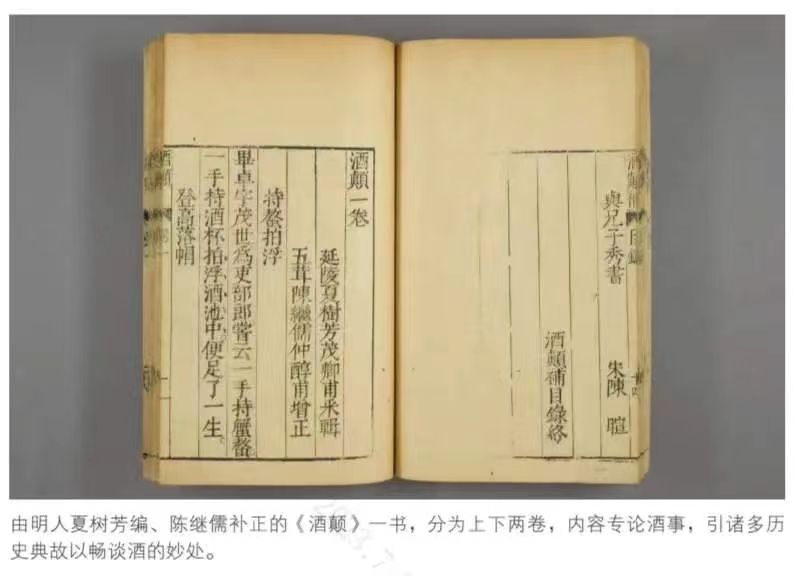 與兄子秀書
陳 暄
酒顛補目錄終
酒顛一卷
延陵夏樹芳茂卿甫采輯
五茸陳繼儒仲醇甫增正
持螯拍浮
畢卓字茂世為吏部郎嘗云一手持蟹螯
一手持酒杯拍浮酒池中便足了一生
登高落帽
酒顛
由明人夏树芳编、陈继儒补正的《酒颠》一书，分为上下两卷，内容专论酒事，引诸多历
史典故以畅谈酒的妙处。